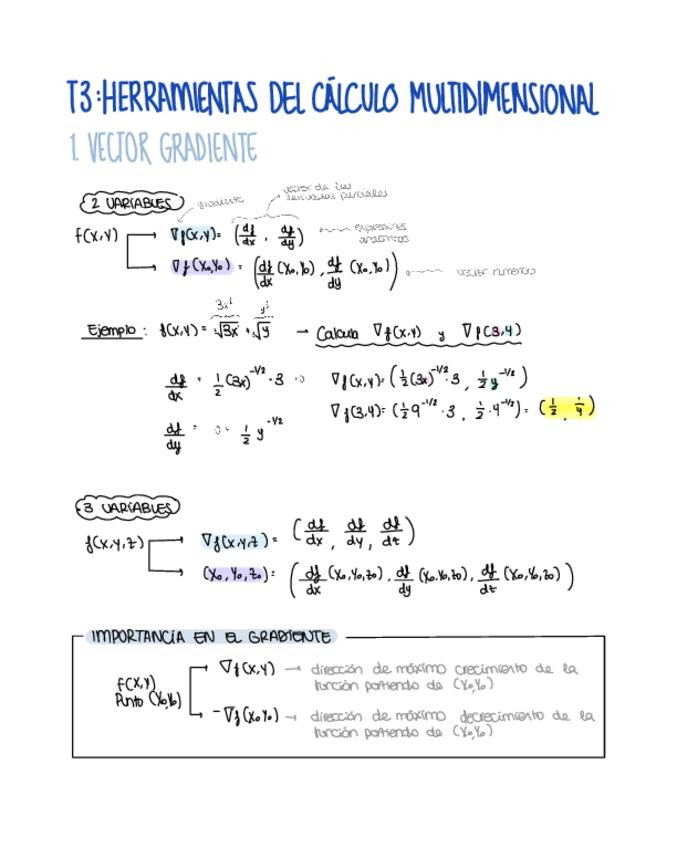 T3: HERRAMIENTAS DEL CÁLCULO MULTIDIMENSIONAL
1. VECTOR GRADIENTE
2 VARIABLES
gradiente
vector de las
derivadas parciales
f(x,y) → ∇f(x,y) = (df/dx , df/dy)
expresiones
analíticas
→ ∇f(x₀,y₀) = (df/dx (x₀,y₀), df/dy (x₀,y₀))
vector numérico
Ejemplo: f(x,y) = √3x + √y → Calcula ∇f(x,y) y ∇f(3,4)
df/dx = 1/2 (3x)^-1/2 · 3 + 0
∇f(x,y) = (1/2 (3x)^-1/2 · 3 , 1/2 y^-1/2)
df/dy = 0 + 1/2 y^-1/2
∇f(3,4) = (1/2 9^-1/2 · 3 , 1/2 · 4^-1/2) = (1/2 , 1/4)
3 VARIABLES
f(x,y,z) → ∇f(x,y,z) = (df/dx , df/dy , df/dz)
→ (x₀,y₀,z₀) = (df/dx (x₀,y₀,z₀), df/dy (x₀,y₀,z₀), df/dz (x₀,y₀,z₀))
IMPORTANCIA EN EL GRADIENTE
f(x,y)
Punto (x₀,y₀)
∇f(x,y) → dirección de máximo crecimiento de la
función partiendo de (x₀,y₀)
-∇f(x₀,y₀) → dirección de máximo decrecimiento de la
función partiendo de (x₀,y₀)